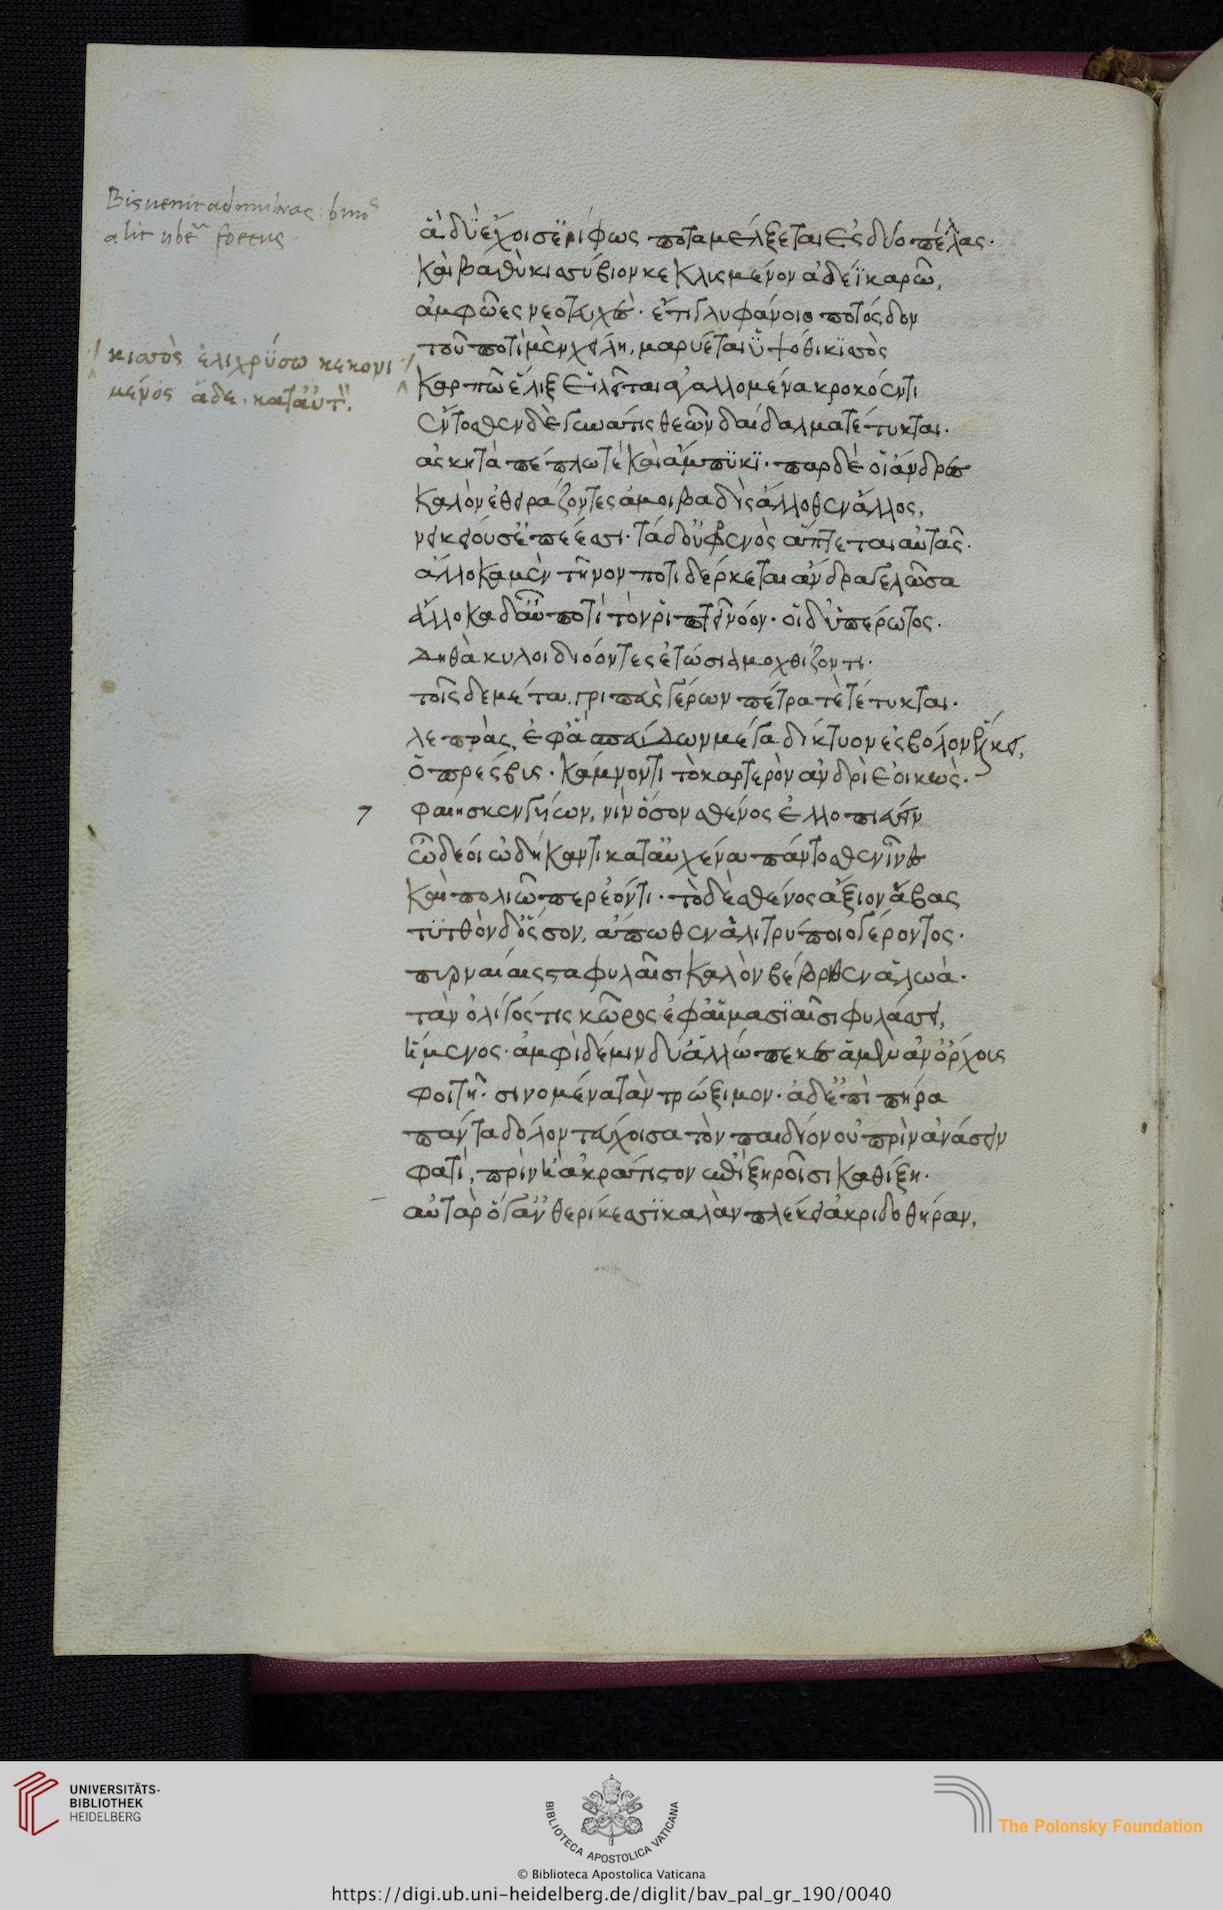 Bis uenit ad mulctra: binos
alit ubere foetus
ἃ δύ' ἔχοισ' ἐρίφως ποταμέλξεται ἐς δύο πέλλας.
καὶ βαθὺ κισσύβιον κεκλισμένον ἁδέϊ καρῶ,
ἀμφῶες νεοτευχές. ἔτι γλυφάνοιο ποτόσδον
τοῦ ποτὶ μὲν χείλη, μαρύεται ὑψόθι κισσὸς
κισσὸς ἑλιχρύσω κεκονι
μένος ἁδε. κατ' αὐτὸν.
καρπῶ ἕλιξ εἱλεῖται ἀγαλλομένα κροκόεντι
ἔντοσθεν δὲ γυνά τις θεῶν δαίδαλμα τέτυκται.
ἀσκητὰ πέπλω τὲ καὶ ἄμπυκι. παρ δὲ οἱ ἄνδρες
καλὸν ἐθειράζοντες ἀμοιβαδὶς ἄλλοθεν ἄλλος,
νεικείουσ' ἐπέεσσι. τὰ δ' οὐ φρενὸς ἅπτεται αὐτᾶς.
ἀλλ' ὁκα μὲν τῆνον ποτιδέρκεται ἄνδρα γελῶσα
ἄλλοκα δ' αὖ ποτὶ τὸν ῥιπτεῖ νόον. οἱ δ' ὑπ' ἔρωτος.
δηθὰ κυλοιδιόοντες ἐτώσια μοχθίζοντι.
τοῖς δε μέτα γριπεὺς γέρων πέτρα τὲ τέτυκται.
λεπρὰς, ἐφ' ᾇ σπεύδων μέγα δίκτυον ἐς βόλον ἕλκει,
ὁ πρέσβυς. κάμνοντι τὸ καρτερὸν ἀνδρὶ ἐοικὼς.
φαίης κεν γυίων, νὶν ὅσον σθένος ἐλλοπιεύειν
ὧδέ οἱ ᾠδήκαντι κατ' αὐχένα πάντοθεν ἶνες
καὶ πολιῶ περ ἐόντι. τὸ δὲ σθένος ἄξιον ἅβας
τυτθὸν δ' ὅσσον, ἄπωθεν ἁλιτρύτοιο γέροντος.
πυρναίαις σταφυλαῖσι καλὸν βέβριθεν ἀλωά.
τὰν ὀλίγος τις κῶρος ἐφ' αἱμασιαῖσι φυλάσσει,
ἥμενος. ἀμφὶ δέ μιν δύ' ἀλλώπεκες ἁ μὲν ἀν' ὄρχοις
φοιτῆ. σινομένα τὰν τρώξιμον. ἁ δ' ἐπὶ πήρα
πάντα δόλον τεύχοισα τὸν παιδίον οὐ πρὶν ἀνάσειν
φατὶ, πρὶν ἢ ἀκράτιστον ἐπὶ ξηροῖσι καθίξη.
αὐτὰρ ὅγ' ἀνθερίκεσσι καλὰν πλέκει ἀκριδοθήραν,
UNIVERSITÄTS-
BIBLIOTHEK
HEIDELBERG
BIBLIOTECA APOSTOLICA VATICANA
© Biblioteca Apostolica Vaticana
https://digi.ub.uni-heidelberg.de/diglit/bav_pal_gr_190/0040
The Polonsky Foundation